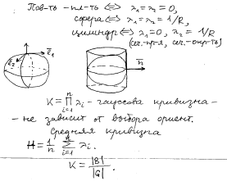 Пов-ть - пл-ть <=> λ₁ = λ₂ = 0,
сфера <=> λ₁ = λ₂ = 1/R,
цилиндр <=> λ₁ = 0, λ₂ = 1/R
(сеч.-пр-я, сеч.-окр-ть)
ē₁
ē₂
n̄
K = ∏ᵢ₌₁ⁿ λᵢ - гауссова кривизна -
- не зависит от выбора ориент.
Средняя кривизна
H = 1/n ∑ᵢ₌₁ⁿ λᵢ.
K = |B| / |G| .